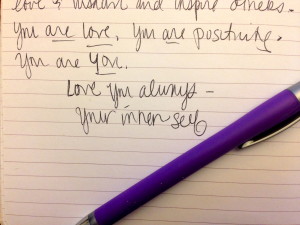 love & instant and inspire others.
You are love. You are positivity.
You are You.
Love you always -
Your inner self